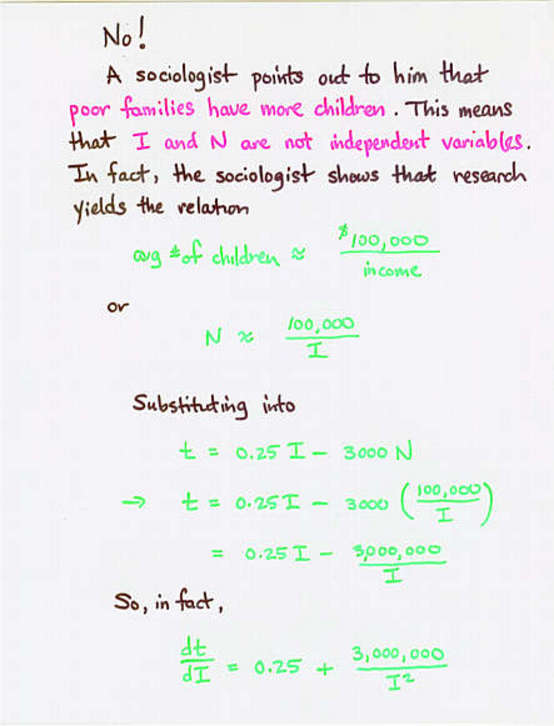 No!
A sociologist points out to him that
poor families have more children. This means
that I and N are not independent variables.
In fact, the sociologist shows that research
yields the relation
avg # of children ≈ $100,000 / income
or
N ≈ 100,000 / I
Substituting into
t = 0.25 I - 3000 N
→ t = 0.25 I - 3000 (100,000 / I)
= 0.25 I - 3,000,000 / I
So, in fact,
dt/dI = 0.25 + 3,000,000 / I²